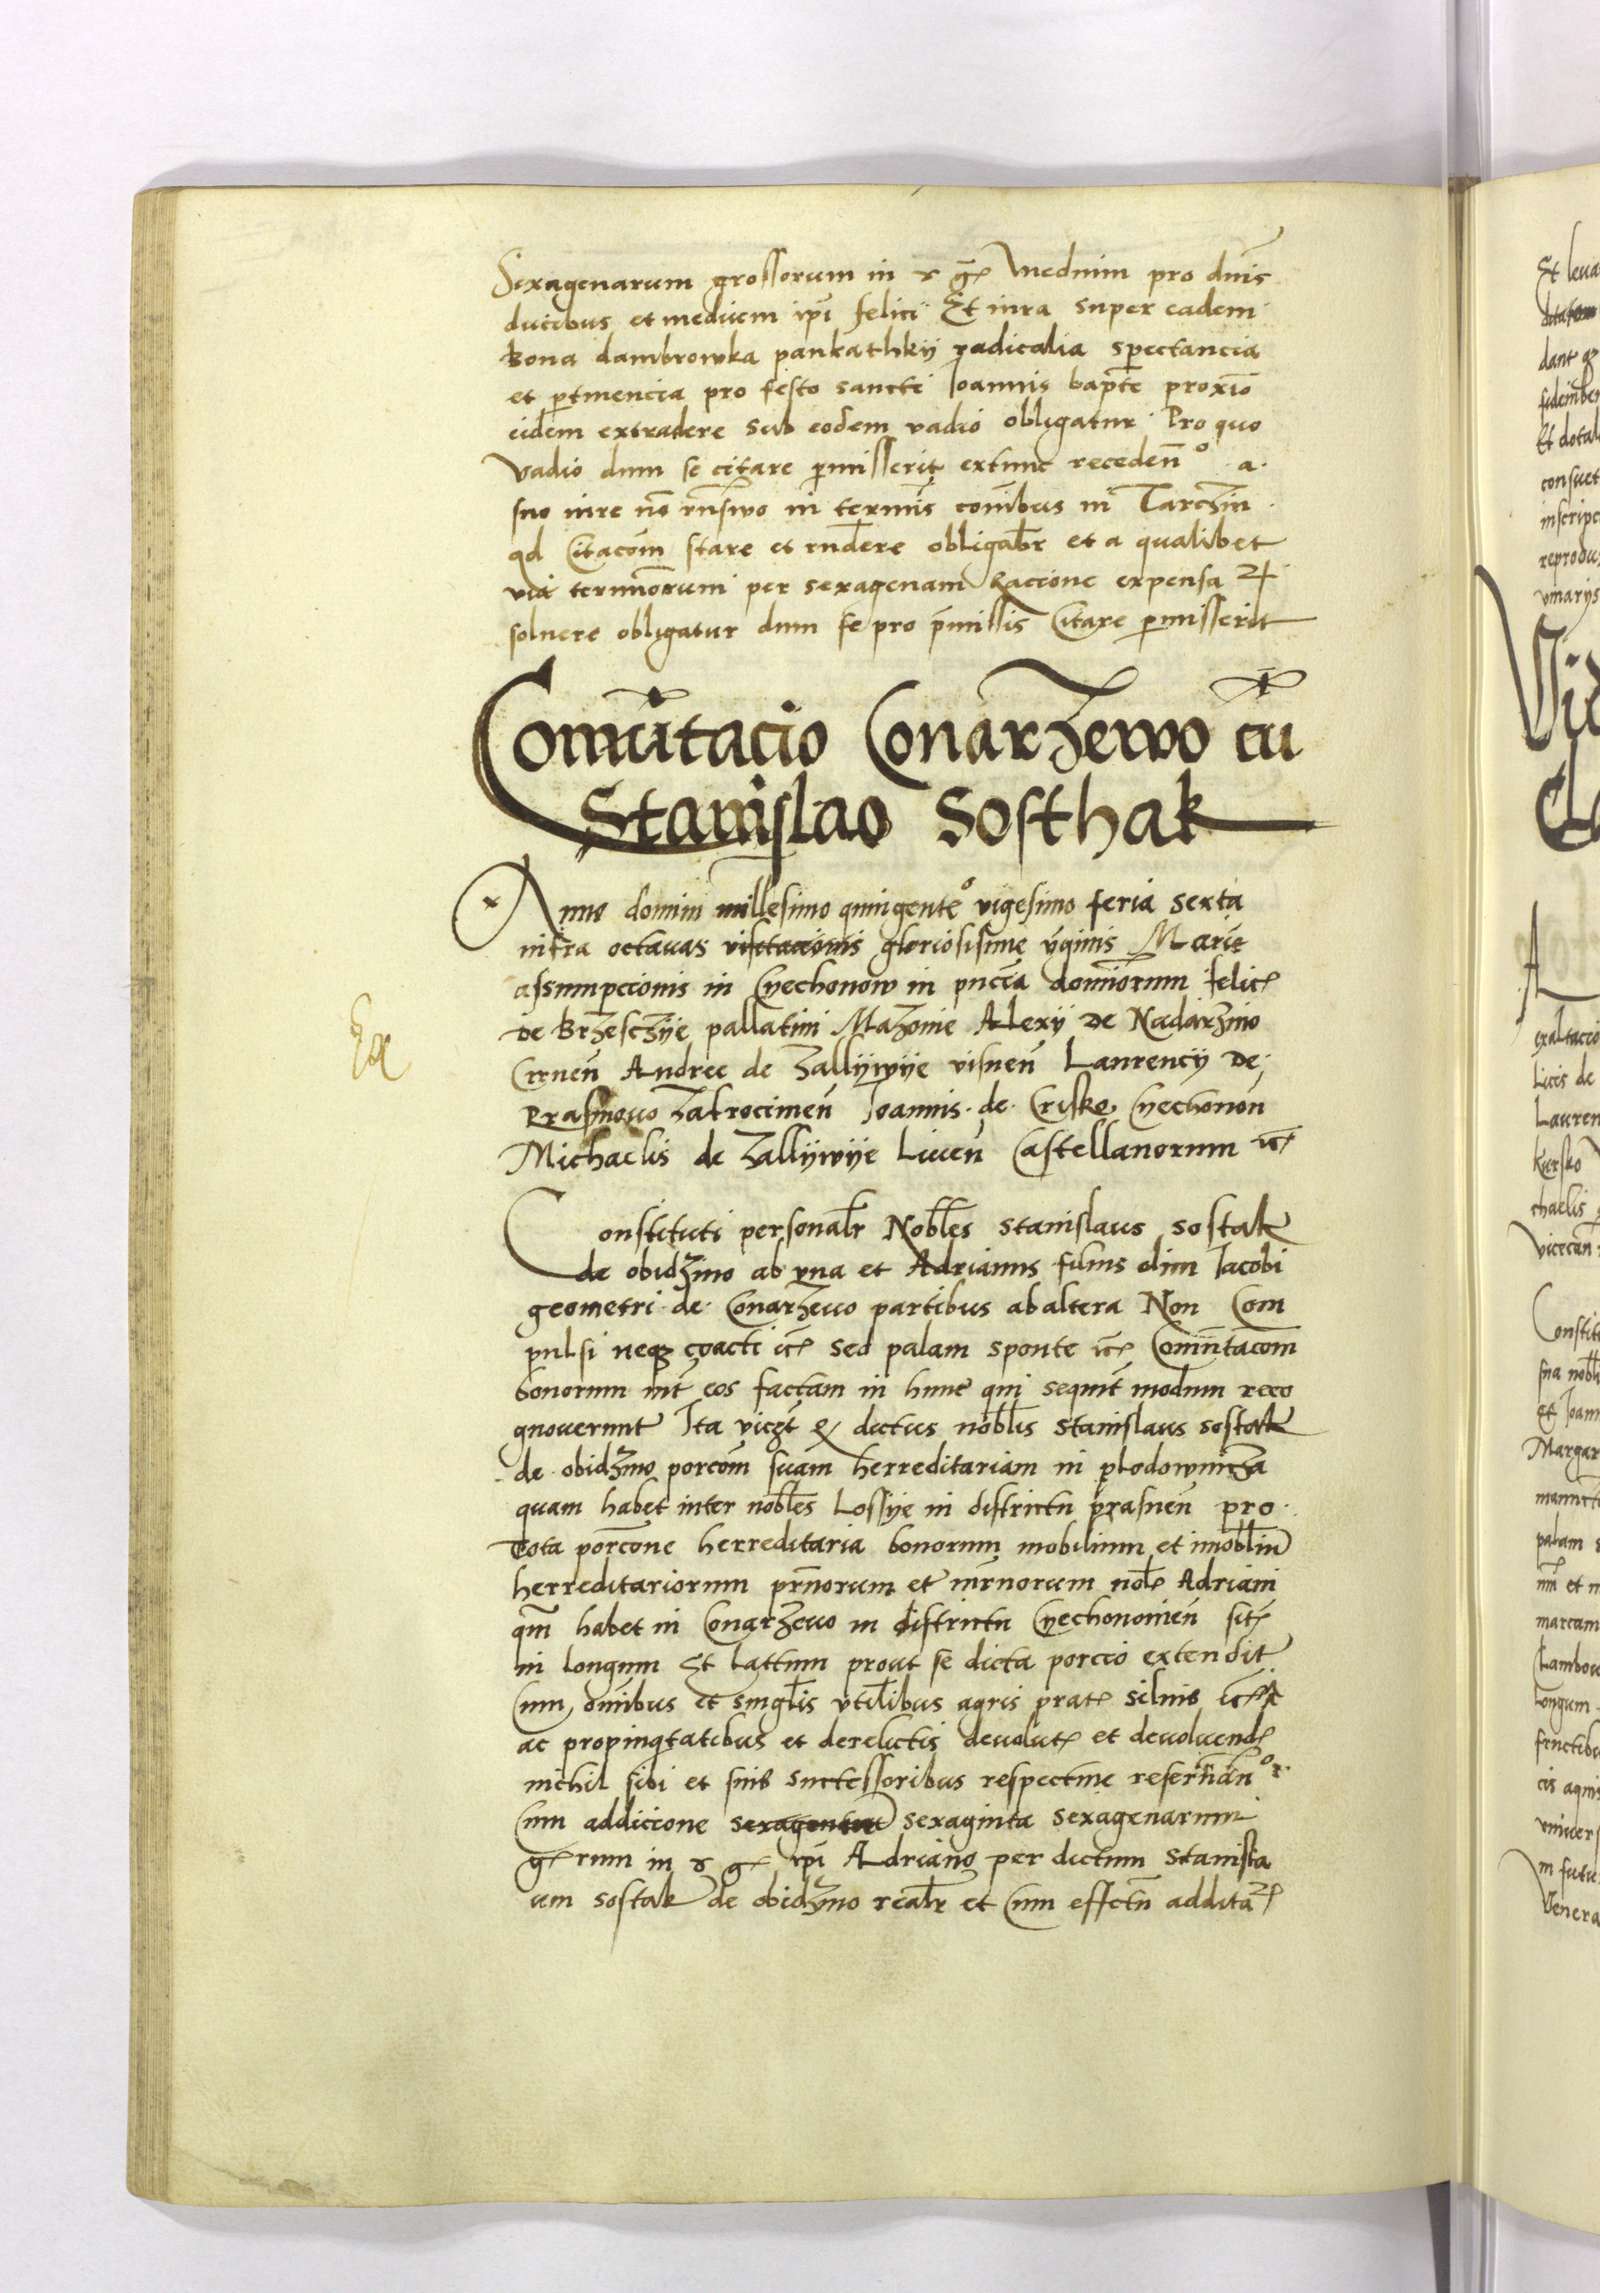 Sexagenarum grossorum in r g Medium pro dnis
ducibus et medium ipi felici Et iura super eadem
bona dambrowka pankathky radicalia spectancia
et ptinencia pro festo sancti Ioannis bapte proximo
eidem extradere sub eodem vadio obligatur Pro quo
vadio dum se citare pmisserit extunc recedeno a
suo iure no rnsivo in terminis coibus in Tarczin
ad Citacom stare et rndere obligabr et a qualibet
via terminorum per sexagenam Racione expensa
solvere obligatur dum se pro pmissis Citare pmisserit
Comutacio Conarzewo cu
Stanislao Sosthak
Anno domini millesimo quingenteo vigesimo feria sexta
infra octavas visitacionis gloriosissime vginis Marie
assumpccionis in Cyechonow in pncia dominorum felic
de Brzesczye pallatini Mazovie Alexy de Nadarzino
Crnen Andree de Zallywye visnen Laurency de
Prasmovo Zakrocimen Ioannis de Crisko Cyechonon
Michaelis de Zallywye Liven Castellanorum
Constituti personalr Nobles Stanislaus Sostak
de obidzino ab vna et Adrianus filius olim Iacobi
geometri de Conarzevo partibus ab altera Non Com
pulsi neq coacti ic sed palam sponte ic Comutacom
bonorum int eos factam in hunc qui sequit modum reco
gnoverunt Ita viczt q dictus noblis Stanislaus Sostak
de obidzino porcom suam herreditariam in plodownicza
quam habet inter nobles Lossye in districtu prasnen pro
tota porcone herreditaria bonorum mobilium et imoblium
herreditariorum prnorum et mrnorum nobl Adriani
qm habet in Conarzevo in districtu Cyechonowien sit
in longum Et Lattum prout se dicta porccio extendit
Cum omibus et singlis vtilibus agris prat silvis ic
ac propinqtatibus et derelictis devolut et devolvend
nichil sibi et suis successoribus respective reservano
Cum addicione sexagenar sexaginta sexagenarum
grum in r g ipi Adriano per dictum Stanisla
um Sostak de obidzino realr et Cum effectu addita